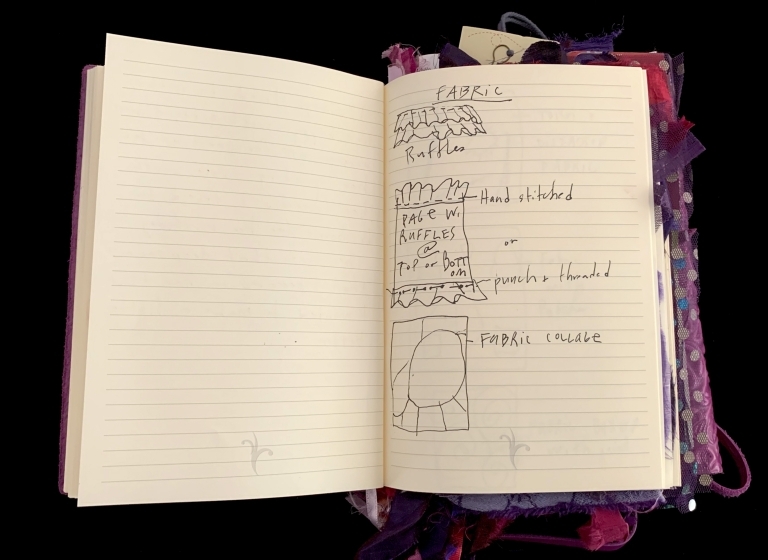 FABRIC
Ruffles
Hand stitched
PAGE W.
RUFFLES
@
TOP or BOTT
OM
or
punch + threaded
FABRIC COLLAGE